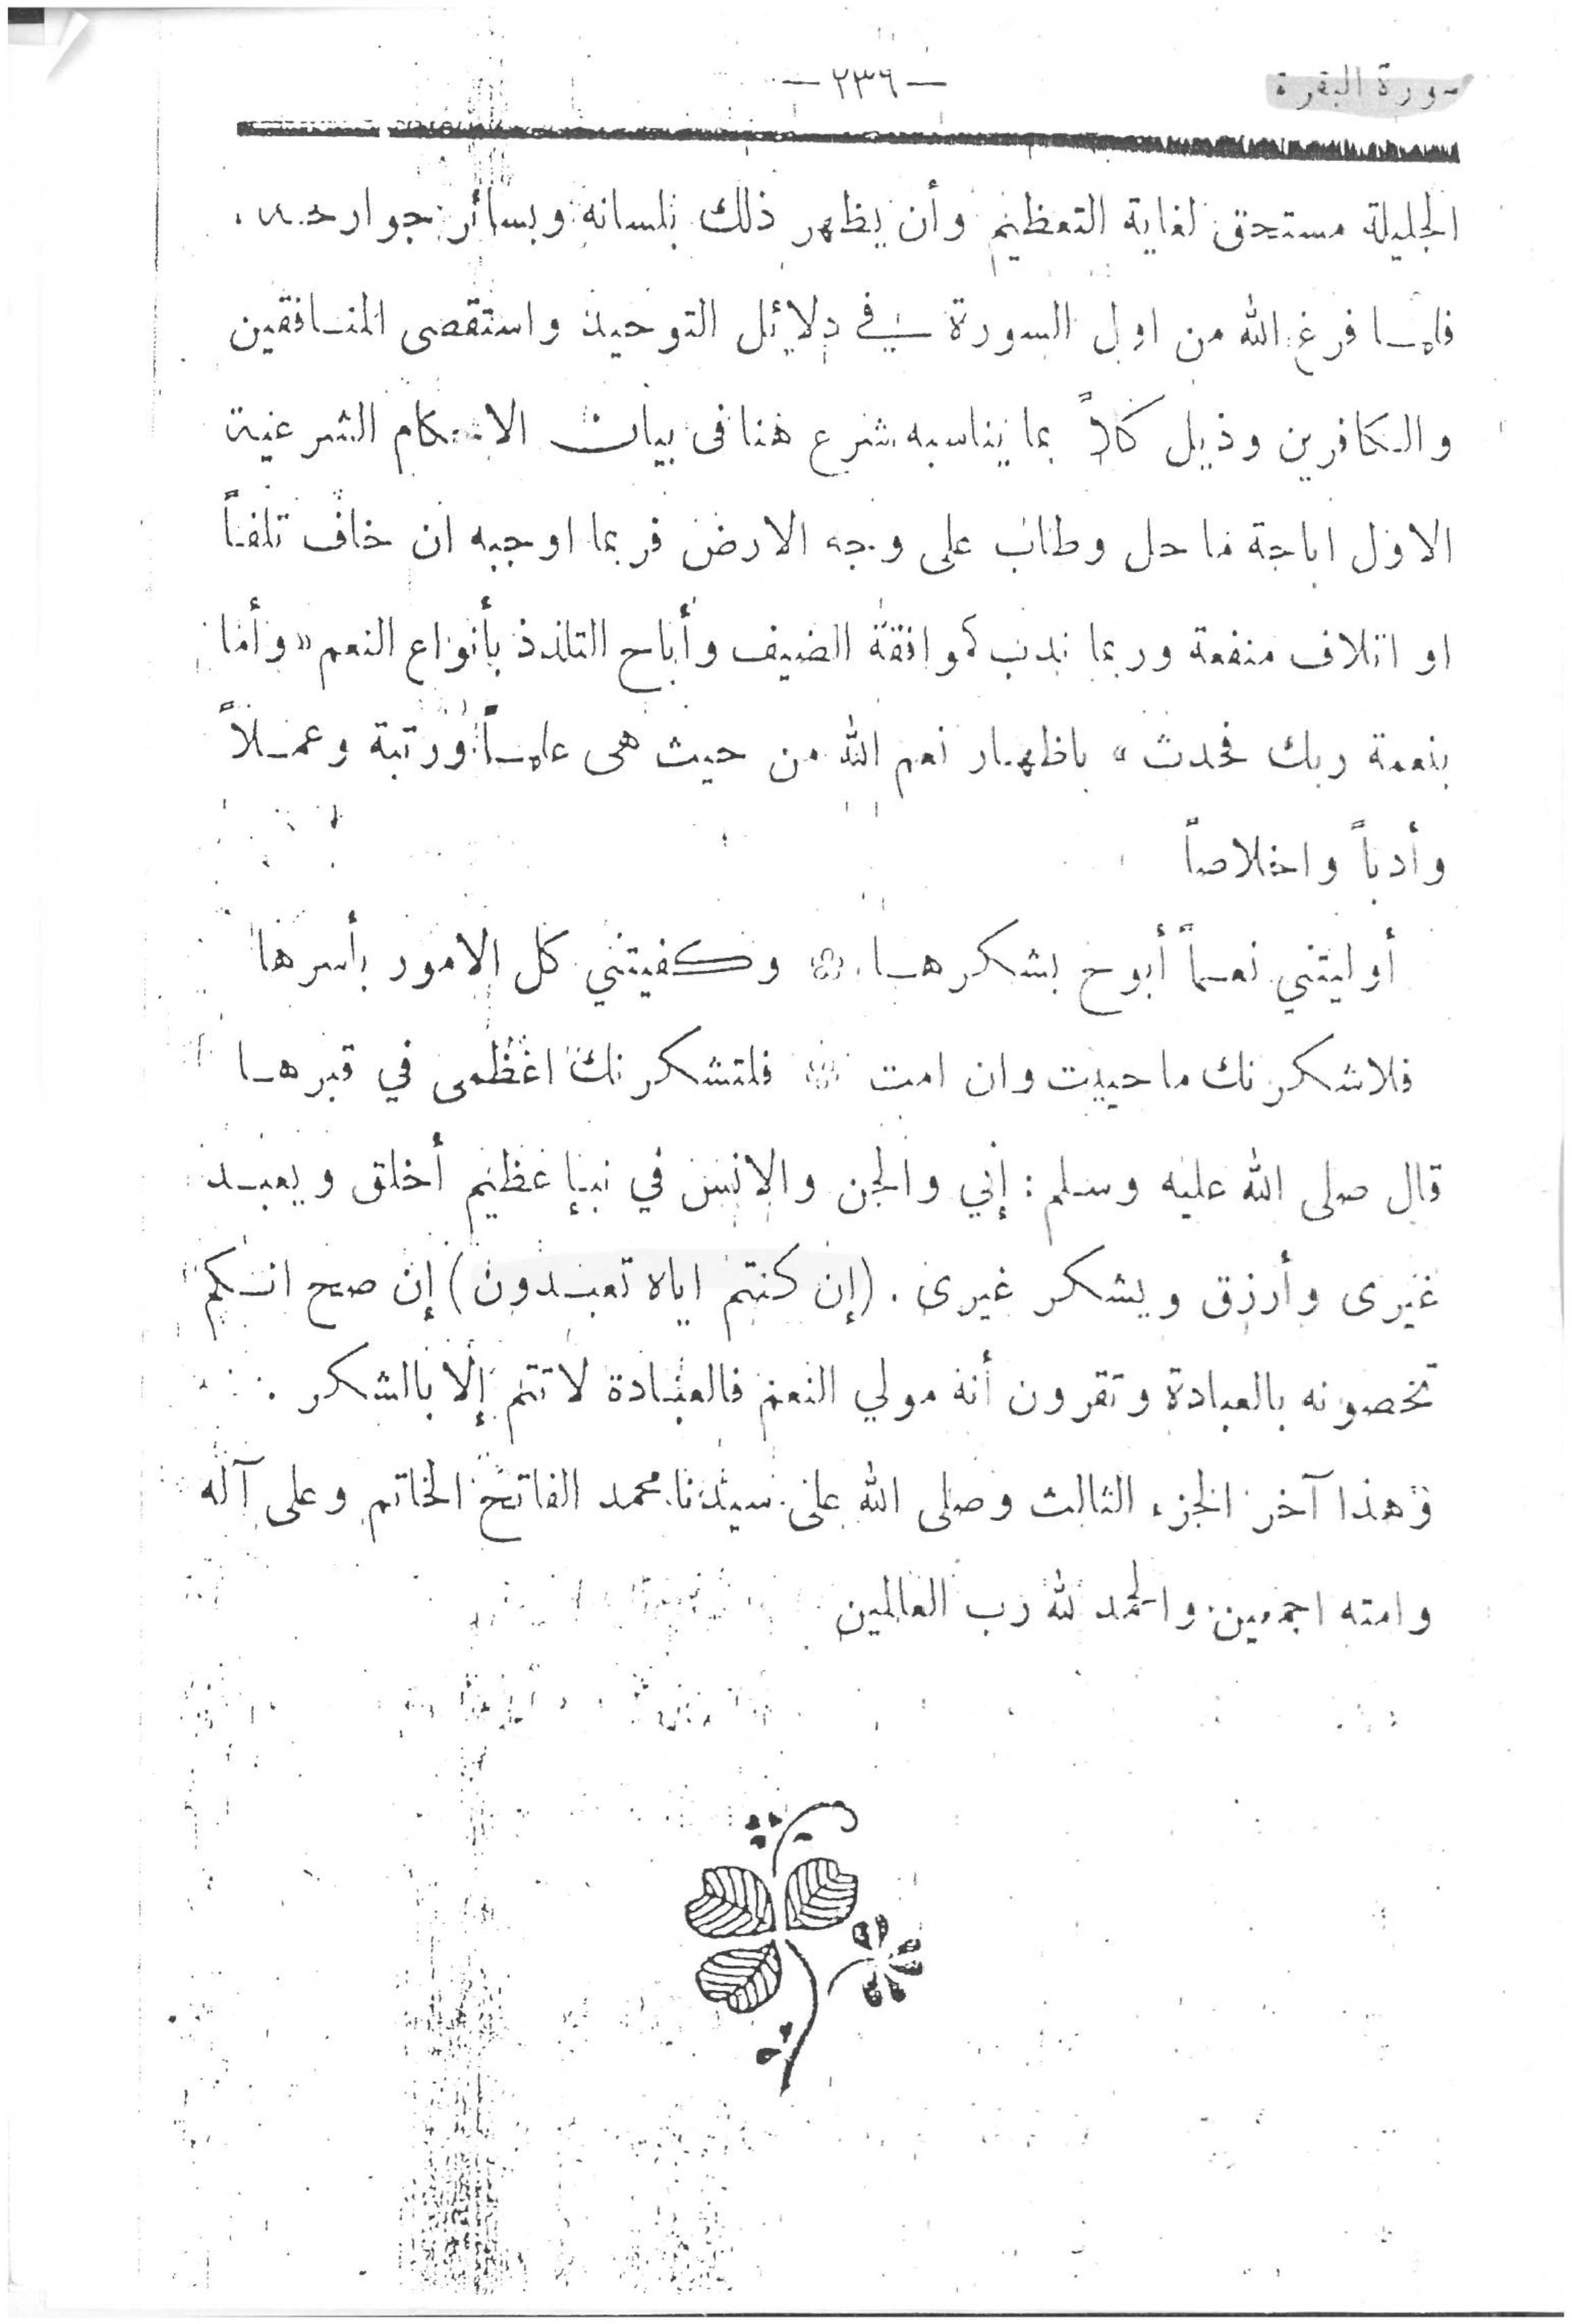 سورة البقرة
— ٢٣٦ —
الجليلة مستحق لغاية التعظيم وأن يظهر ذلك بلسانه وبسائر جوارحه .
فلما فرغ الله من اول السورة في دلائل التوحيد واستقصى المنافقين
والكافرين وذيل كلاً بما يناسبه شرع هنا فى بيان الاحكام الشرعية
الاول اباحة ما حل وطاب على وجه الارض فربما اوجبه ان خاف تلفاً
او اتلاف منفعة وربما ندب كموافقة الضيف وأباح التلذذ بأنواع النعم « وأما
بنعمة ربك فحدث » باظهار نعم الله من حيث هى علماً ورتبة وعملاً
وأدباً واخلاصاً
أوليتني نعماً أبوح بشكرها ۞ وكفيتني كل الامور بأسرها
فلاشكرنك ماحييت وان امت ۞ فلتشكرنك اعظمى في قبرها
قال صلى الله عليه وسلم : إني والجن والانس في نبإ عظيم أخلق ويعبد
غيرى وأرزق ويشكر غيرى . (إن كنتم اياه تعبدون) إن صح انكم
تخصونه بالعبادة وتقرون أنه مولي النعم فالعبادة لا تتم إلا بالشكر .
وهذا آخر الجزء الثالث وصلى الله على سيدنا محمد الفاتح الخاتم وعلى آله
وامته اجمعين والحمد لله رب العالمين